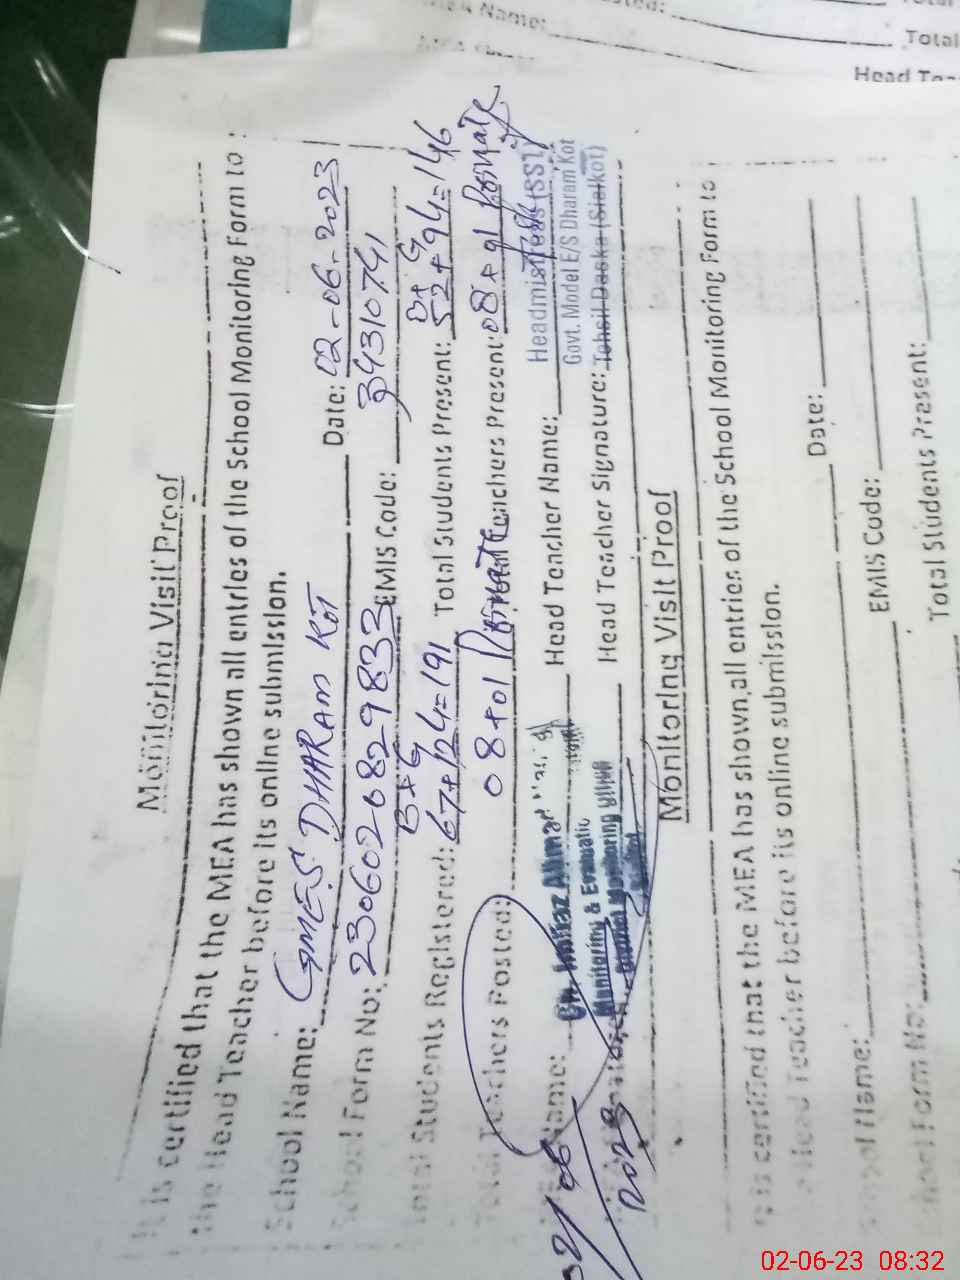 Name:
Total
Head Tea
Monitoring Visit Proof
It is certified that the MEA has shown all entries of the School Monitoring Form to
the Head Teacher before its online submission.
School Name: GMES DHARAM KOT Date: 02-06-2023
School Form No: 230602082983 EMIS Code: 34310741
B+G B+G
Total Students Registered: 67+124=191 Total Students Present: 52+94=146
Total Teachers Posted: 08+01 Private Teachers Present: 08+01 Private
Name: Ch. Imtiaz Ahmad Head Teacher Name: Headmistress (SST)
Monitoring & Evaluatio Govt. Model E/S Dharam Kot
District Monitoring Head Teacher Signature: Tehsil Daska (Sialkot)
02/06
2023
Monitoring Visit Proof
It is certified that the MEA has shown all entries of the School Monitoring Form to
Head Teacher before its online submission.
School Name: Date:
School Form No: EMIS Code:
Total Students Present:
02-06-23 08:32